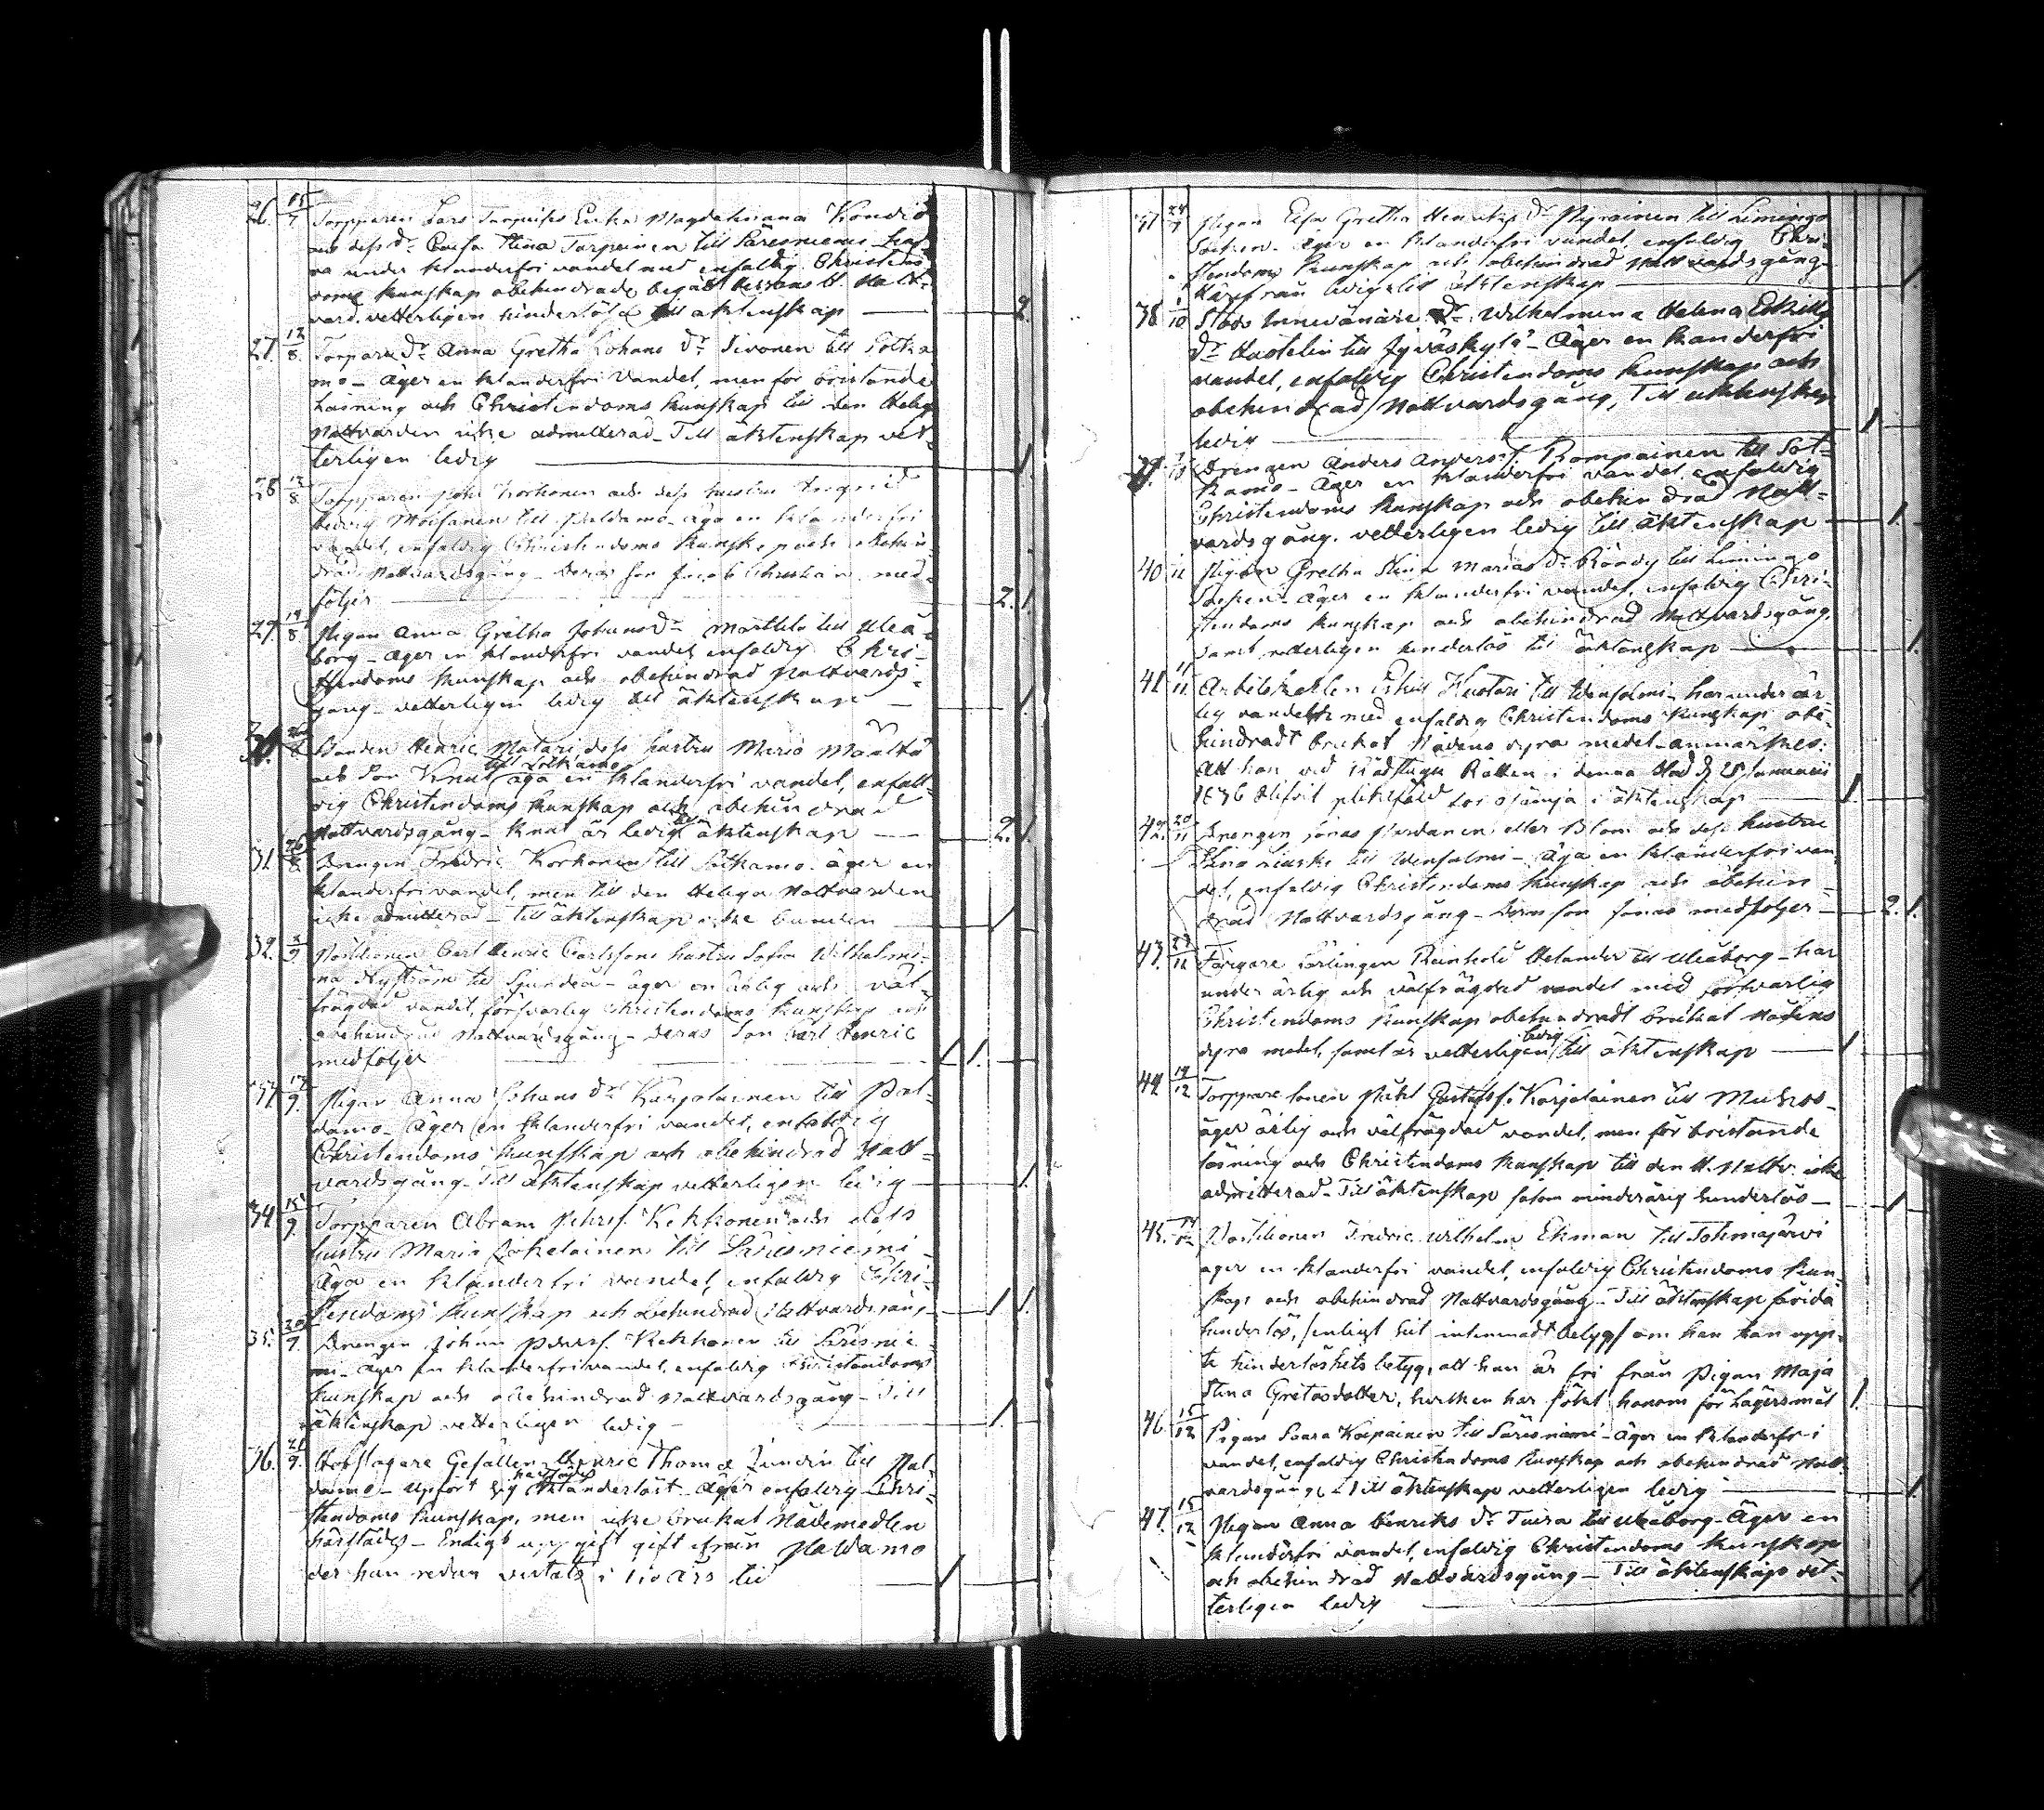 26. 15/7 Torpparen Lars Tarpeises Enka Magdalena Kondid
och dess dr Caisa Stina Tarpeinen till Säresniemi haf-
va under klanderfri vandel med enfaldig Christen-
doms kunskap obehindrade begått Herrans H. Natt-
vard. vetterligen hinderlösa till äktenskap — 2.
27. 12/8. Torpare dr Anna Gretha Johans dr Sivonen till Sotka
mo - äger en klanderfri vandel, men för bristande
Läsning och Christendoms kunskap till den Helig
Nattvarden icke admitterad - Till äktenskap vet-
terligen ledig — 1
28 12/8 Torpparen Korhonen och dess hustru Ingrid
Hedvig Moisanen till Paldamo - äga en klanderfri
vandel, enfaldig Christendoms kunskap och obehin-
drad Nattvardsgång - Deras son Jacob Christian med-
följer — 2. 1
29. 19/8. Pigan Anna Gretha Johans dr Marttila till Uleå-
borg - äger en klanderfri vandel enfaldig Chri-
stendoms kunskap och obehindrad Nattvards-
gång - vetterligen ledig till äktenskap — 1
Bonden Henric Matari dess hustru Maria Määttä
och Son Knut till Sotkamo äga en klanderfri vandel, enfall-
dig Christendoms kunskap och obehindrad
Nattvardsgång - Knut är ledig till äktenskap — 2. 1
31. 26/8 Drengen Fredric Korhonen till Sotkamo. äger en
klanderfri vandel, men till den Heliga Nattvarden
icke admitterad - Till äktenskap icke bunden — 1
32. 3/9 Postilionen Carl Henric Carlssons hustru Sofia Wilhelmi-
na Nyström till Sjundeå - äger en ärlig och väl-
frägdad vandel, försvarlig Christendoms kunskap och
obehindrad Nattvardsgång - deras Son Carl Henric
medföljer — 1 1.
9. Pigan Anna Johans dr Karjalainen till Pal-
damo - Äger en klanderfri vandel, enfaldig
Christendoms kunskap och obehindrad Natt-
vardsgång - Till äktenskap vetterligen ledig — 1.
34 15/9. Torpparen Abram Pehrs. Kekkonen och dess
hustru Maria Jokelainen till Säresniemi -
Äga en klanderfri vandel, enfaldig Chri-
stendoms kunskap och obehindrad Nattvardsgång — 1 1.
35. 20/9. Drengen Johan Kekkonen till Säresnie-
mi - äger en klanderfri vandel, enfaldig Christendoms
kunskap och obehindrad Nattvardsgång - Till
äktenskap vetterligen ledig — 1.
36. 21/9. Hofslagare Gesällen Henric Thomæ Lundin till Pal-
damo - upfört sig härstädes klanderlöst - Äger enfaldig Chri-
stendoms kunskap, men icke brukat Nådemedlen
härstädes - Enligt uppgift gift ifrån Paldamo
der han redan vistats i tio års tid — 1
37 24/9 Pigan Elsa Gretha Henriks dr Pyrainen till Limingo
Socken. Äger en klanderfri vandel, enfaldig Chri-
stendoms kunskap och obehindrad Nattvardsgång -
Härifrån ledig till äktenskap — 1
38 1/10 Stads Innevånare dr Wilhelmina Helena Eskils
dr Hastelin till Jyväskylä - Äger en klanderfri
vandel, enfaldig Christendoms kunskap och
obehindrad Nattvardsgång, Till äktenskap
ledig — 1
39. Drengen Anders Anders S. Rompainen till Sot-
kamo - Äger en klanderfri vandel enfaldig
Christendoms kunskap och obehindrad Natt-
vardsgång. vetterligen ledig till äktenskap — 1.
40 Pigan Gretha Stina Marias dr Röndy till Limingo
Socken - Äger en klanderfri vandel, enfaldig Chri-
stendoms kunskap och obehindrad Nattvardsgång,
samt vetterligen hinderlös till äktenskap — 1.
41. 11/11 Arbetskarlen Eskil Kustari till Idensalmi - har under är-
lig vandel med enfaldig Christendoms kunskap obe-
hindradt brukat Nådens dyra medel - anmärkes:
Att han vid Rådstugu Rätten i denna Stad d. 25 Januarii
1836 blifvit pliktfäld för osämja i äktenskap — 1.
42. 20/11 Drengen Jonas Pardanen eller Blom och dess hustru
Stina till Idensalmi - Äga en klanderfri van-
del, enfaldig Christendoms kunskap och obehin-
drad Nattvardsgång - deras son Jonas medföljer — 2. 1.
43. 23/11 Färgare Lärlingen Reinhold Helander till Uleåborg - har
under ärlig och välfrägdad vandel med försvarlig
Christendoms kunskap obehindradt brukat Nådens
dyra medel, samt är vetterligen ledig till äktenskap — 1
44 14/12 Torppare Sonen Påhl Gustafs s. Karjalainen till Muhos -
äger ärlig och välfrägdad vandel, men för bristande
läsning och Christendoms kunskap till den H. Nattv. icke
admitterad - Till äktenskap såsom minderårig hinderlös — 1
45. 14/12 Postilionen Fredric Wilhelm Ekman till Tohmajärvi
äger en klanderfri vandel, enfaldig Christendoms kun-
skap och obehindrad Nattvardsgång - Till äktenskap
hinderlös, enligt hit inlemnadt betyg om han kan upp-
te hinderlöshets betyg, att han är fri från Pigan Maja
Stina Gretasdotter, hvilken har sökt honom för Lägersmål 1.
46. 15/12 Pigan Saara Karpainen till Säresniemi - äger en klanderfri
vandel, enfaldig Christendoms kunskap och obehindrad Natt-
vardsgång - Till äktenskap vetterligen ledig — 1.
47. 15/12 Pigan Anna Henriks dr Tuira till Uleåborg - Äger en
klanderfri vandel, enfaldig Christendoms kunskap
och obehindrad Nattvardsgång - Till äktenskaps vet-
terligen ledig — 1